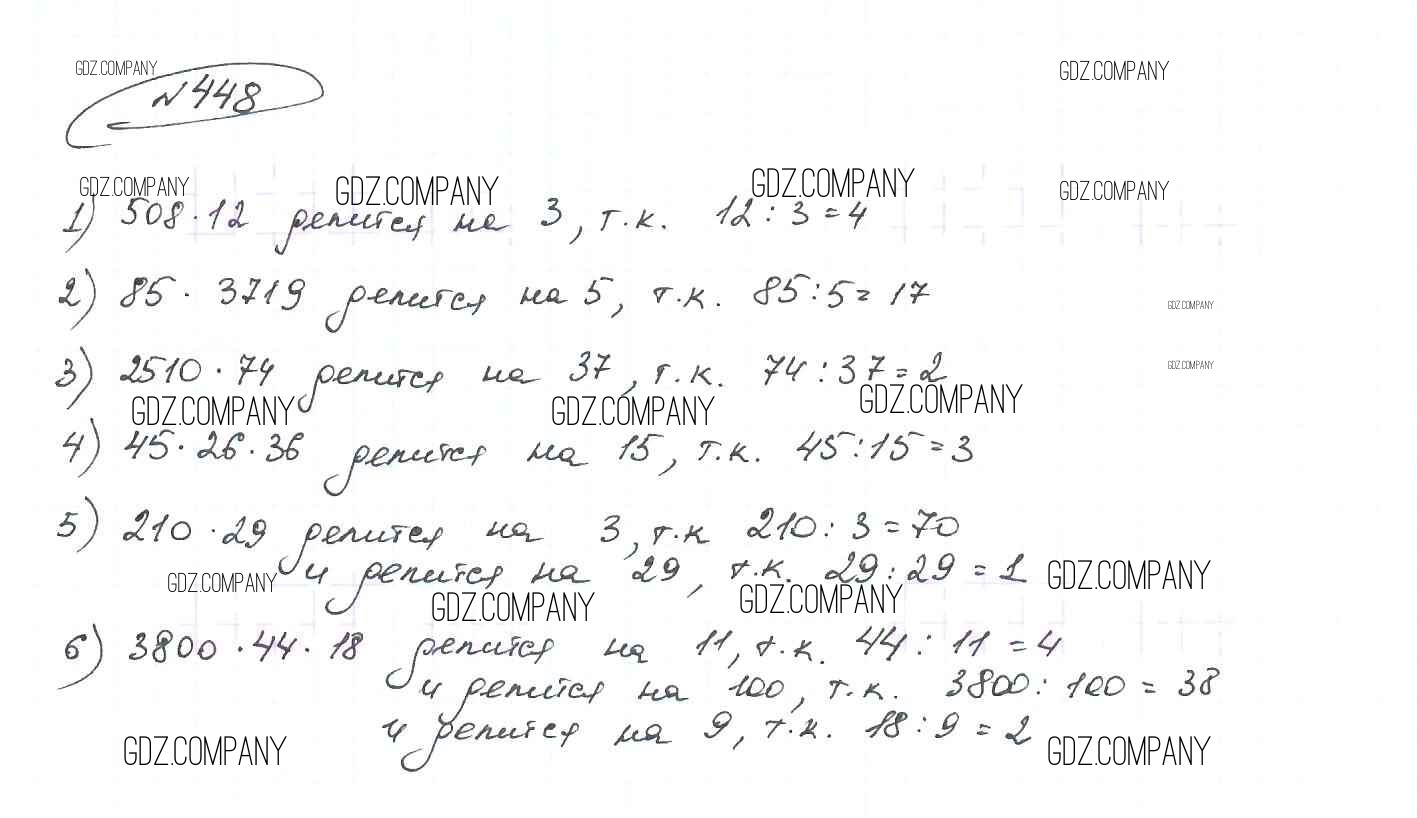 GDZ.COMPANY GDZ.COMPANY
№448
GDZ.COMPANY GDZ.COMPANY GDZ.COMPANY GDZ.COMPANY
1) 508·12 делится на 3, т.к. 12:3=4
2) 85·3719 делится на 5, т.к. 85:5=17
GDZ.COMPANY
3) 2510·74 делится на 37, т.к. 74:37=2
GDZ.COMPANY
GDZ.COMPANY GDZ.COMPANY GDZ.COMPANY
4) 45·26·36 делится на 15, т.к. 45:15=3
5) 210·29 делится на 3, т.к 210:3=70
и делится на 29, т.к. 29:29=1 GDZ.COMPANY
GDZ.COMPANY GDZ.COMPANY GDZ.COMPANY
6) 3800·44·18 делится на 11, т.к. 44:11=4
и делится на 100, т.к. 3800:100=38
и делится на 9, т.к. 18:9=2
GDZ.COMPANY GDZ.COMPANY